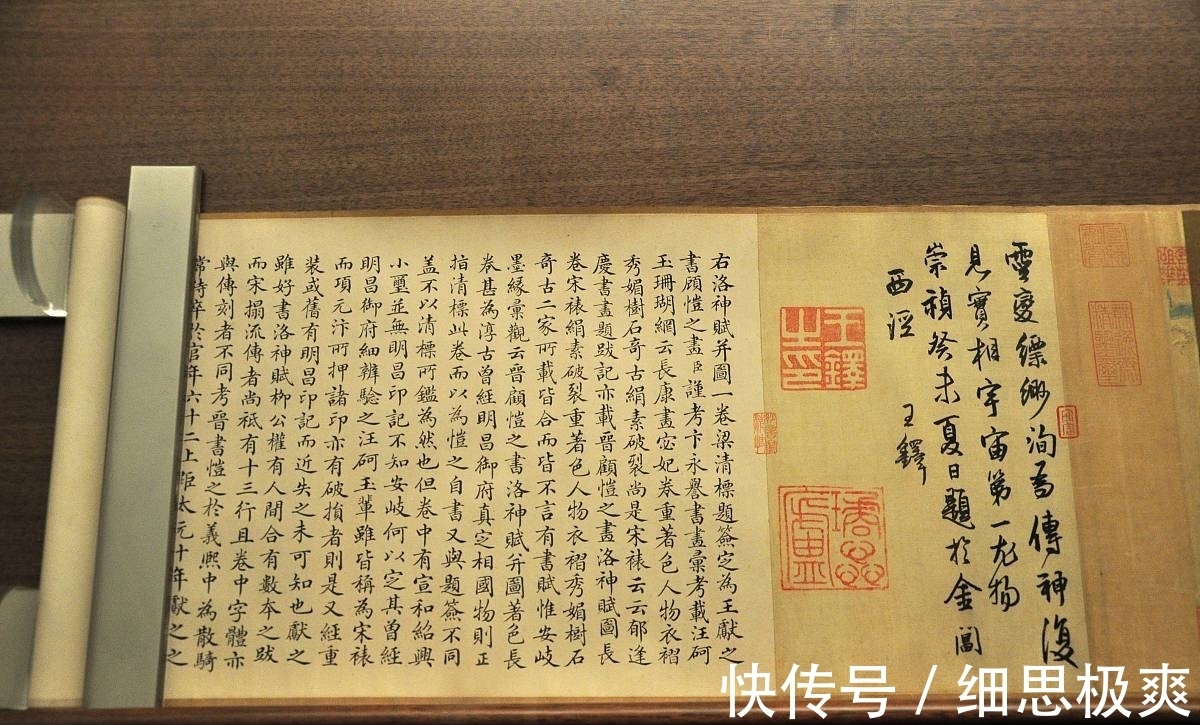 靈變縹緲洵為傳神復
見實相宇宙第一尤物
崇禎癸未夏日題於金閶
西涇 王鐸
王鐸之印
右洛神賦并圖一卷梁清標題簽定為王獻之
書顧愷之畫臣謹考卞永譽書畫彙考載汪砢
玉珊瑚網云長康畫宓妃卷重著色人物衣褶
秀媚樹石奇古絹素破裂尚是宋裱云云郁逢
慶書畫題跋記亦載晉顧愷之畫洛神賦圖長
卷宋裱絹素破裂重著色人物衣褶秀媚樹石
奇古二家所載皆合而皆不言有書賦惟安岐
墨緣彙觀云晉顧愷之書洛神賦并圖著色長
卷甚為淳古曾經明昌御府真定相國物則正
指清標此卷而以為愷之自書又與題簽不同
蓋不以清標所鑑為然也但卷中有宣和紹興
小璽並無明昌印記不知安岐何以定其曾經
明昌御府細辨驗之汪砢玉輩雖皆稱為宋裱
而項元汴所押諸印亦有破損者則是又經重
裝或舊有明昌印記而近失之未可知也獻之
雖好書洛神賦柳公權有人間合有數本之跋
而宋搨流傳者尚祗有十三行且卷中字體亦
與傳刻者不同考晉書愷之於義熙中為散騎
常侍卒於官年六十二上距太元十年獻之之
快传号 / 细思极爽